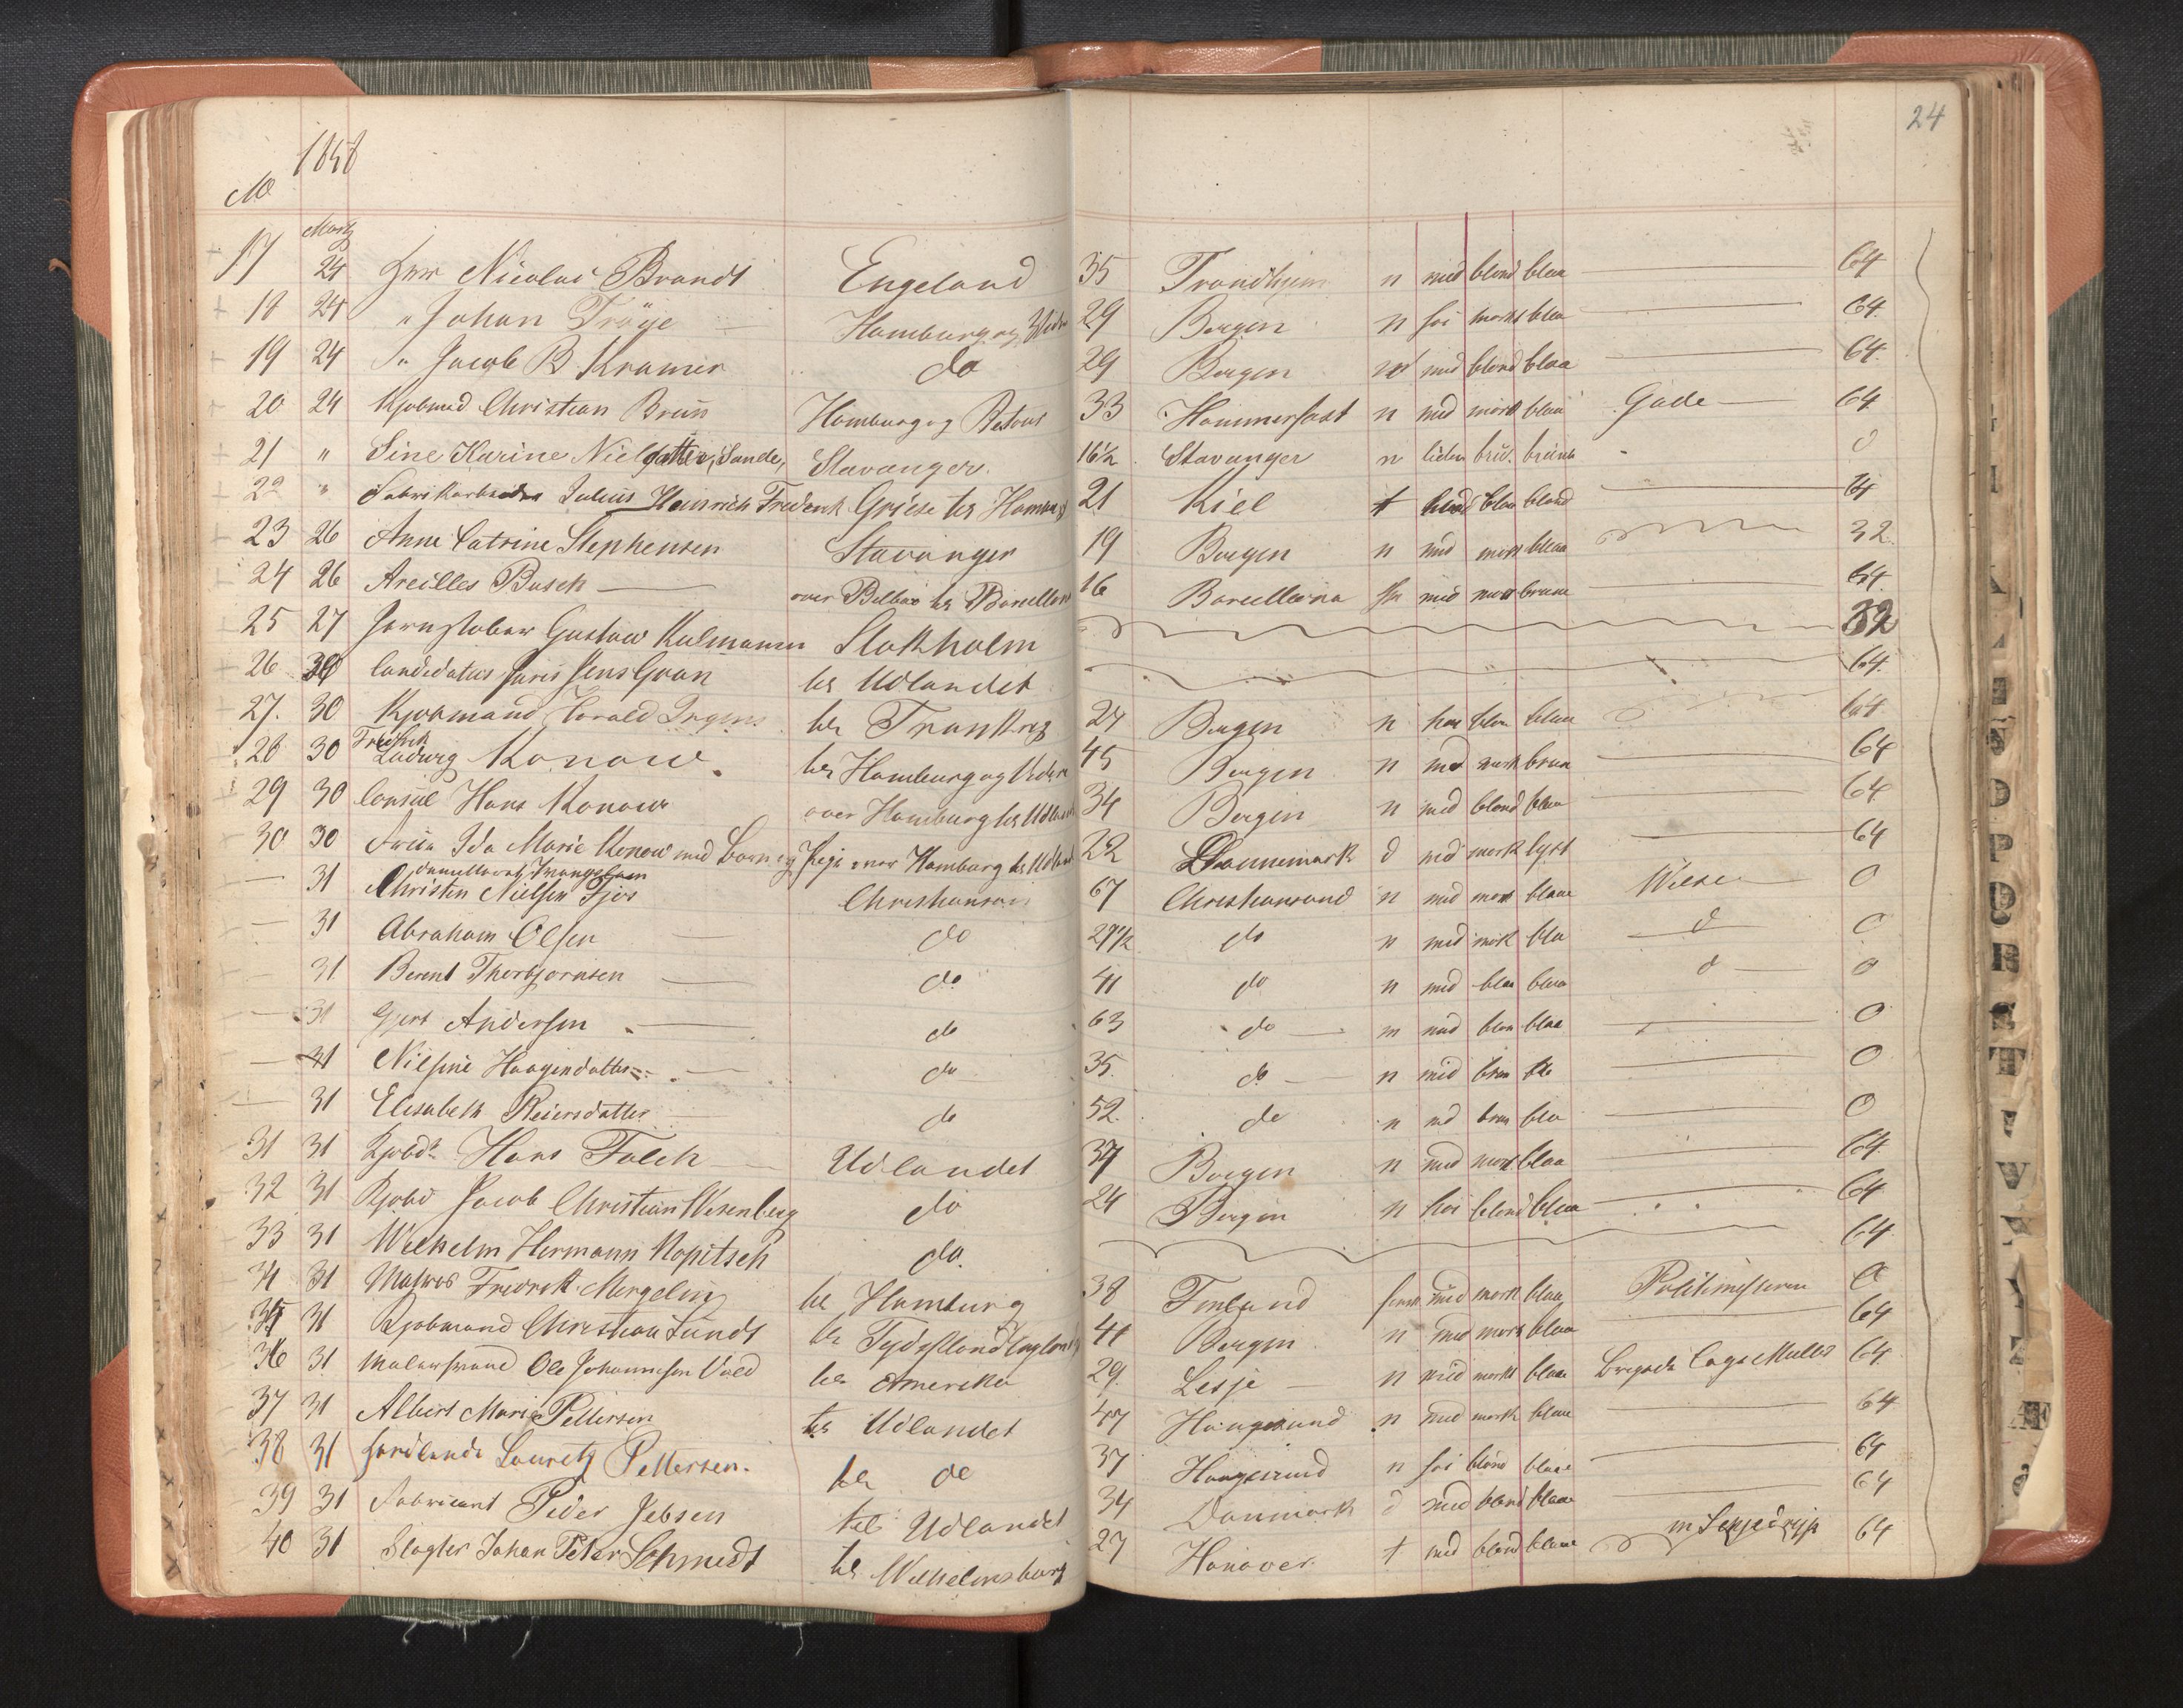 24
No 1848
Martz
17 24 Herr Nicolai Brandt Engeland 35 Trondhjem n mid blond blaa 64
18 24 " Johan Tröye Hamburg og 29 Bergen n høi mørkt blaa 64
19 24 " Jacob B. Kramer do 29 Bergen mid blond blaa 64
20 24 Kjøbmd Christian Bruun Hamburg og Retour 33 Hammerfest n mid mørk blaa Gade 64
21 " Sine Karine Nielsdatter, Sande, Stavanger. 16½ Stavanger n liden 0
22 " Fabrikarbeider Julius Heinrich Fredrick Griese til Hamburg 21 Kiel t blond 64
23 26 Anne Catrine Stephensen Stavanger 19 Bergen n mid mørk blaa 32
24 26 Busch over Bilbao til Barcellona 16 Barcellona mid mørk brune 64
25 27 Gustow Kulmann Stokholm 32
26 30 Candidatus Juris Jens Gran til Udlandet 64
27. 30 Kjøbmand Harald Irgens til Frankrig 24 Bergen n blaa 64
28 30 Fredrik Ludvig Konow. til Hamburg og videre 45 Bergen n mid mørk brun 64
29 30 Consul Hans Konow over Hamburg til Udlandet 34 Bergen n mid blond blaa 64
30 30 Fru Ida Marie Konow med Barn og Pige over Hamburg til Udlandet 22 Dannemark d mid mørk lyst 64
31 Christen Nielsen Christiansand 67 Christiansand n mid mørk blaae 0
31 Abraham Olsen do 29½ do n mid mørk bla d 0
31 Berent Thorbjørnsen do 41 do n mid blaa blaa d 0
31 Gjert Andersen do 63 do n mid blaa 0
31 Nilsine Haagendatter do 35. do n mid brun bla 0
31 Elisabeth Reiersdatter do 52. do n md brun bla 0
31 31 Kjøbd Hans Falch Udlandet 37 Bergen n mid mørk blaa 64
32 31 Kjøbd Jacob Christian Wesenberg do 24 Bergen n høi blond blaa 64
33 31 Wilhelm Hermann Kopitsch do. 64
34 31 Matros Fredrik Mergelin til Hamburg 38 Finland finsk mid mørk blaa Politimesteren 0
35 31 Kjøbmand Christian Sundt til Tydskland England 41 Bergen n mid mørk blaa 64
36 31 Malersvend Ole Johannesen Vold til Amerika 29. Lesje n mid mørkt blaae 64
37 31 Albert Marie Pettersen til Udlandet 47 Haugesund n mid mørk blaae 64
38 31 Lauretz Pettersen. til do 37 Haugesund n høi blond blaae 64
39 31 Fabricant Peder Jebsen til Udlandet 34 Danmark d mid blond blaae 64
40 31 Slagter Johan Peter Schmedt til Wilhelmsburg 27 Hanover t mid blond blaae 64